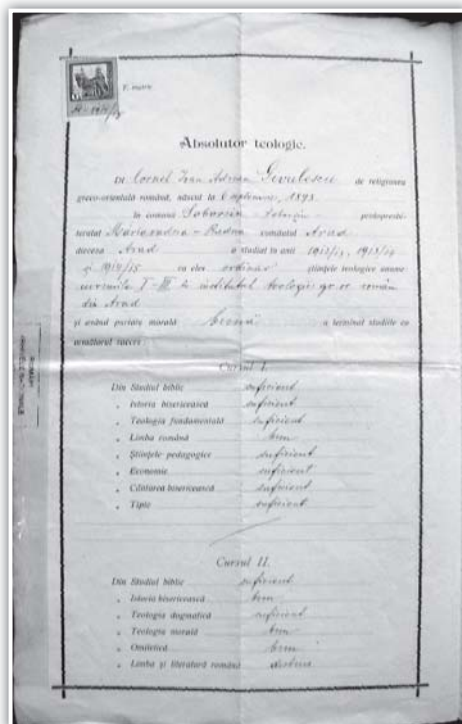 T. matre
Absolutor teologic.
Dl Cornel Ioan Adrian Gevulescu de religiunea
greco-orientală română, născut la 6 septemvrie, 1893.
în comuna Soborsin protopresbi-
teratul Máriaradna - Radna comitatul Arad
dieceza Arad a studiat în anii 1912/13, 1913/14
și 1914/15 ca elev ordinar științele teologice anume
cursurile I-III la institutul teologic gr. or. român
din Arad
și având purtare morală bună a terminat studiile cu
următorul succes:
Cursul I.
Din Studiul biblic suficient
„ Istoria bisericească suficient
„ Teologia fundamentală suficient
„ Limba română bun
„ Științele pedagogice suficient
„ Economie suficient
„ Cântarea bisericească suficient
„ Tipic suficient
Cursul II.
Din Studiul biblic suficient
„ Istoria bisericească bun
„ Teologia dogmatică suficient
„ Teologia morală bun
„ Omiletică bun
„ Limba și literatură română